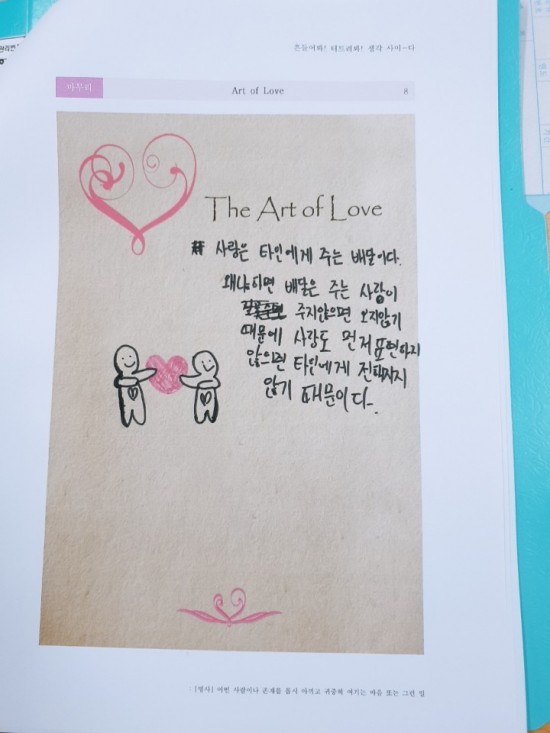 흔들어봐! 터트려봐! 생각 사이-다
마무리
Art of Love
8
The Art of Love
# 사랑은 타인에게 주는 배달이다.
왜냐하면 배달은 주는 사람이
주지않으면 오지않기
때문에 사랑도 먼저 표현하지
않으면 타인에게 전해지지
않기 때문이다.
: [명사] 어떤 사람이나 존재를 몹시 아끼고 귀중히 여기는 마음 또는 그런 일